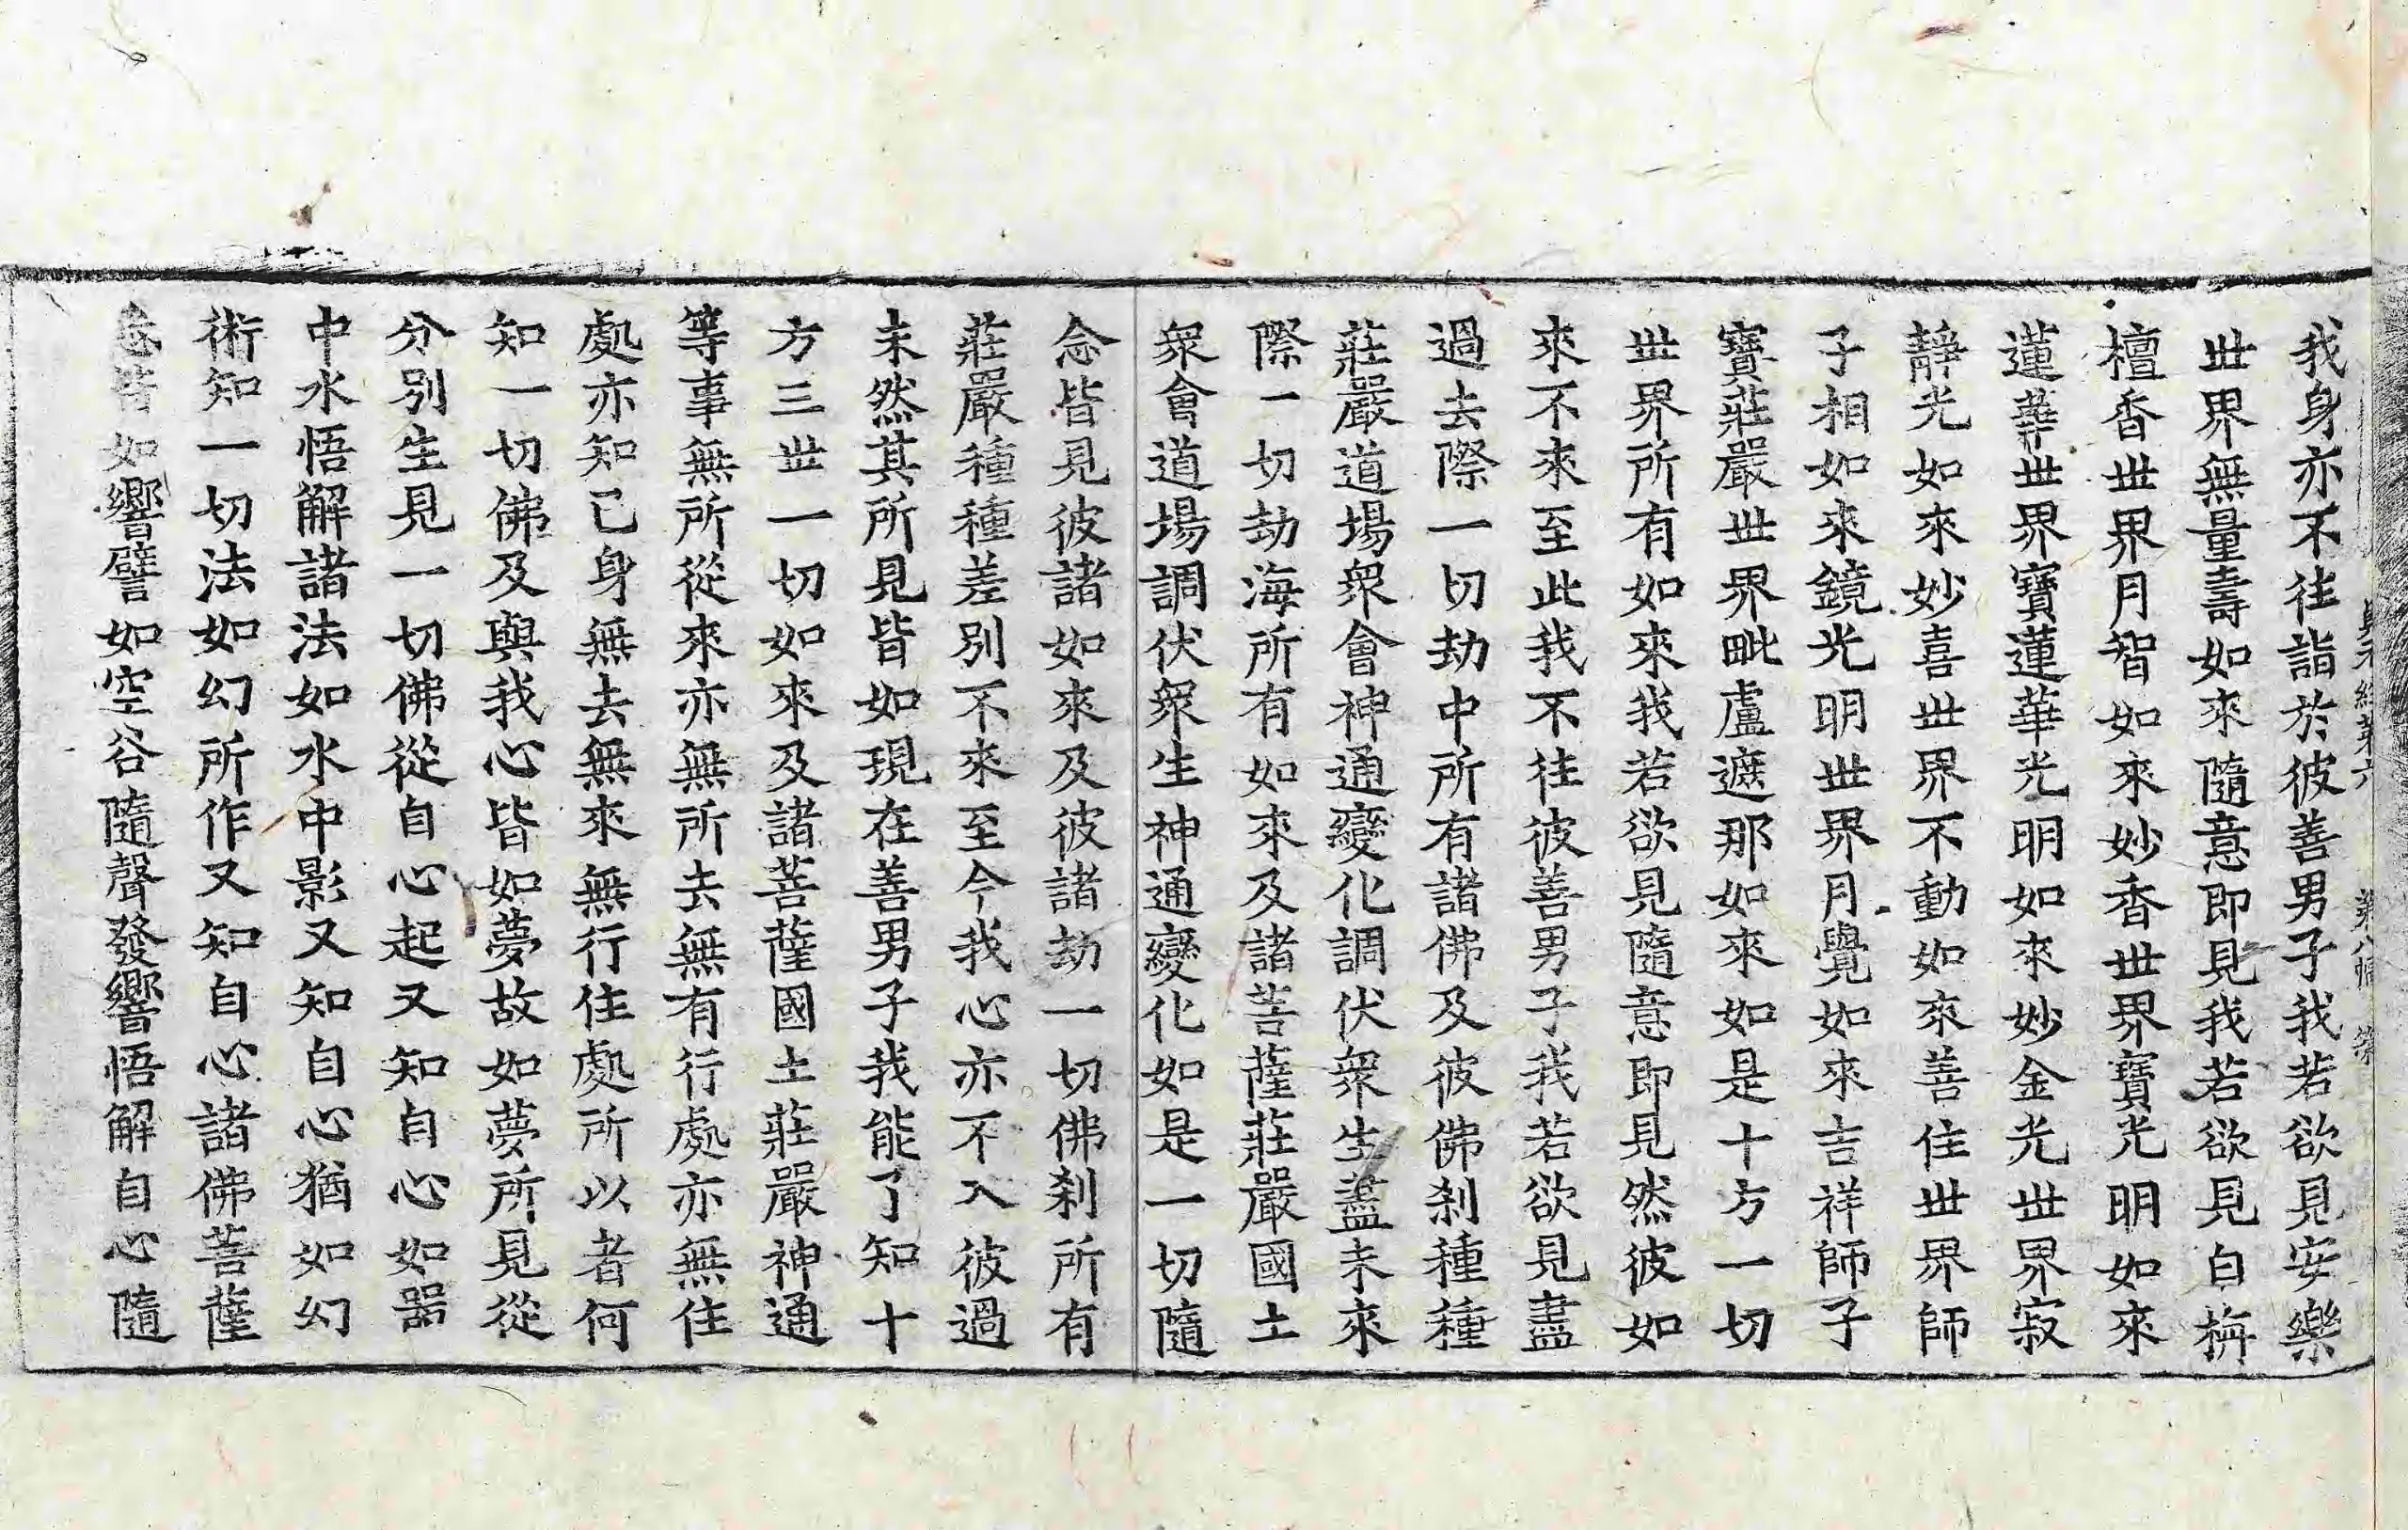 我身亦不往詣於彼善男子我若欲見安樂
世界無量壽如來隨意即見我若欲見白栴
檀香世界月智如來妙香世界寶光明如來
蓮華世界寶蓮華光明如來妙金光世界寂
靜光如來妙喜世界不動如來善住世界師
子相如來鏡光明世界月覺如來吉祥師子
寶莊嚴世界毗盧遮那如來如是十方一切
世界所有如來我若欲見隨意即見然彼如
來不來至此我不往彼善男子我若欲見盡
過去際一切劫中所有諸佛及彼佛刹種種
莊嚴道場衆會神通變化調伏衆生盡未來
際一切劫海所有如來及諸菩薩莊嚴國土
衆會道場調伏衆生神通變化如是一切隨
念皆見彼諸如來及彼諸劫一切佛刹所有
莊嚴種種差別不來至今我心亦不入彼過
未然其所見皆如現在善男子我能了知十
方三世一切如來及諸菩薩國土莊嚴神通
等事無所從來亦無所去無有行處亦無住
處亦知己身無去無來無行住處所以者何
知一切佛及與我心皆如夢故如夢所見從
分別生見一切佛從自心起又知自心如器
中水悟解諸法如水中影又知自心猶如幻
術知一切法如幻所作又知自心諸佛菩薩
悉皆如響譬如空谷隨聲發響悟解自心隨